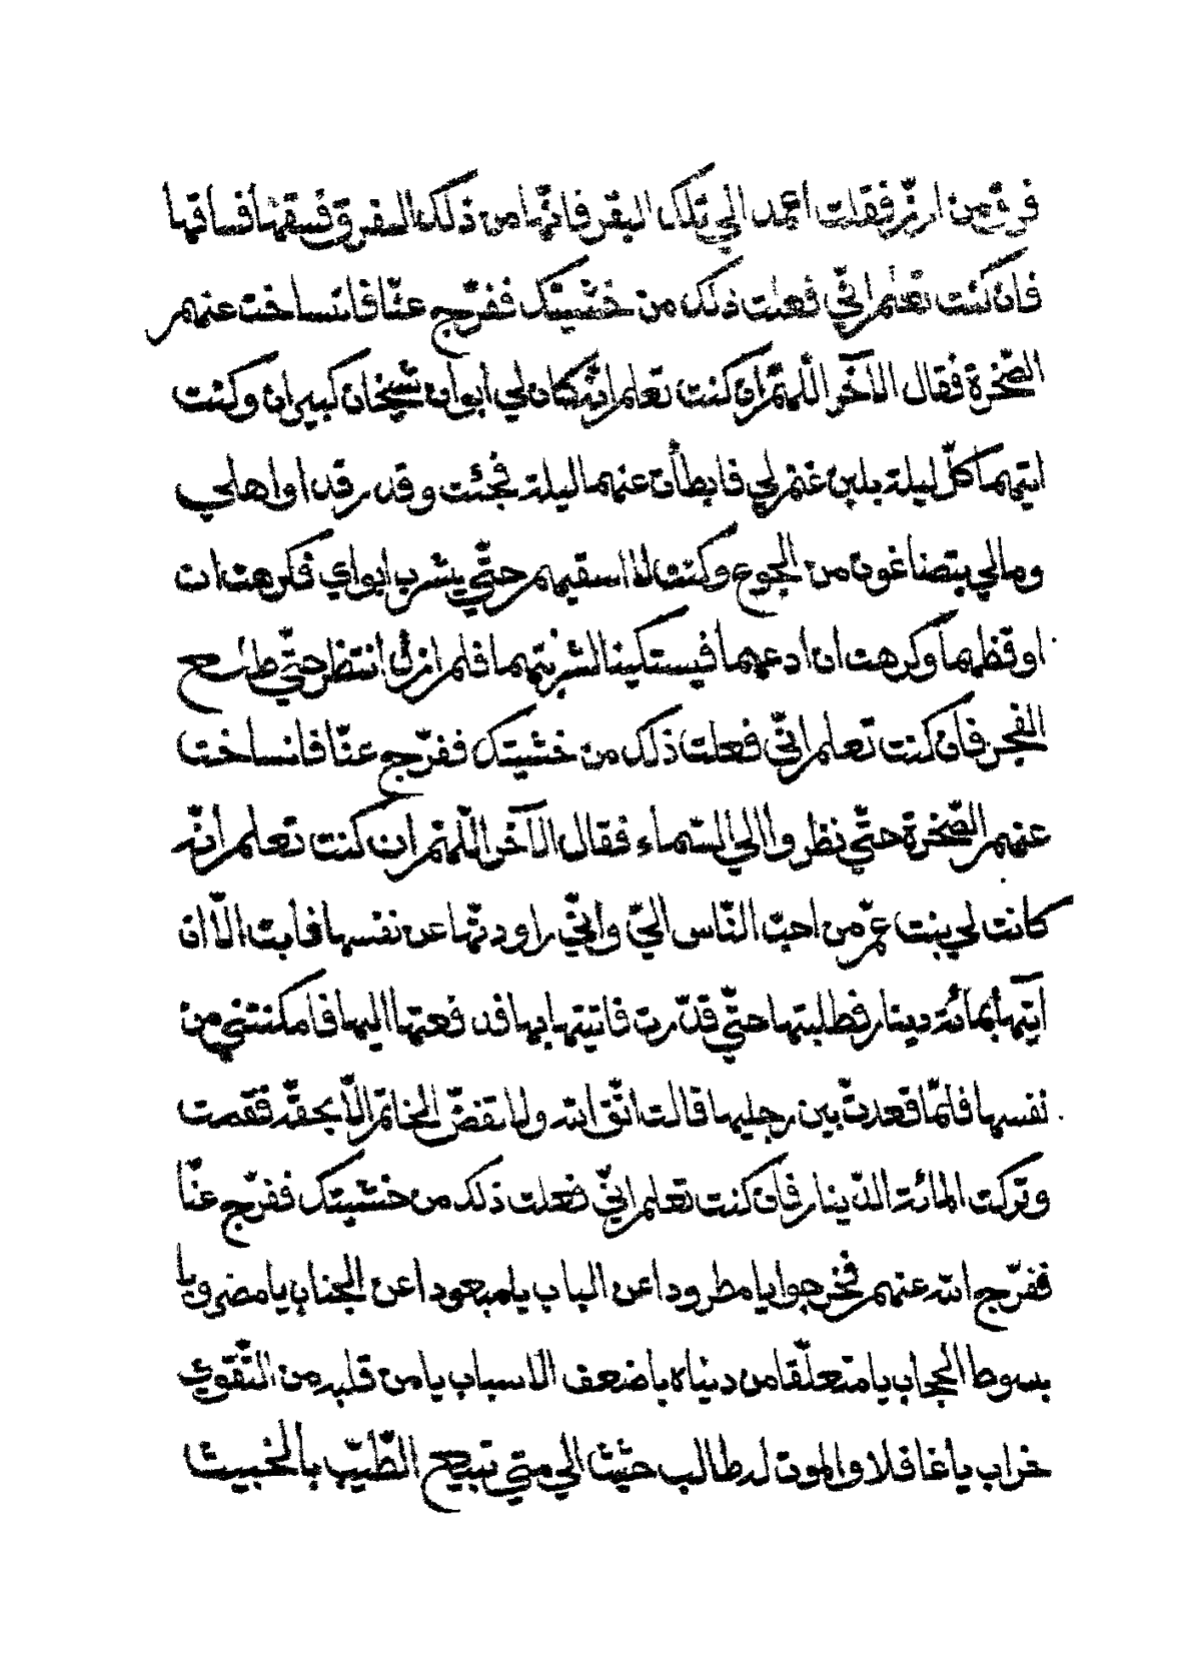 فرق من ارزّ فقلت اعمد الي تلك البقر فانّها من ذلك الفرق فسقها فساقها
فان كنت تعلم انّي فعلت ذلك من خشيتك ففرّج عنّا فانساخت عنهم
الصّخرة فقال الآخر اللّهمّ ان كنت تعلم انّه كان لي ابوان شيخان كبيران وكنت
اتيهما كلّ ليلة بلبن غنم لي فابطأت عنهما ليلة فجئت وقد رقدا واهلي
وعيالي يتضاغون من الجوع وكنت لا اسقيهم حتّي يشرب ابواي فكرهت ان
اوقظهما وكرهت ان ادعهما فيستكينا لشربتهما فلم ازل انتظر حتّي طلع
الفجر فان كنت تعلم انّي فعلت ذلك من خشيتك ففرّج عنّا فانساخت
عنهم الصّخرة حتّي نظروا الي السّماء فقال الآخر اللّهمّ ان كنت تعلم انّه
كانت لي بنت عمّ من احبّ النّاس اليّ وانّي راودتّها عن نفسها فأبت الّا ان
آتيها بمائة دينار فطلبتها حتّي قدّرت فاتيتها بها فدفعتها اليها فامكنتني من
نفسها فلمّا قعدتّ بين رجليها قالت اتّق الله ولا تفضّ الخاتم الّا بحقّه فقمت
وتركت المائة الدّينار فان كنت تعلم انّي فعلت ذلك من خشيتك ففرّج عنّا
ففرّج الله عنهم فخرجوا يا مطرودا عن الباب يا مبعودا عن الجناب يا مضروبا
بسوط الحجاب يا متعلّقا من دنياه باضعف الاسباب يا من قلبه من التّقوي
خراب يا غافلا والموت له طالب حثيث الي متي تبيع الطّيّب بالخبيث